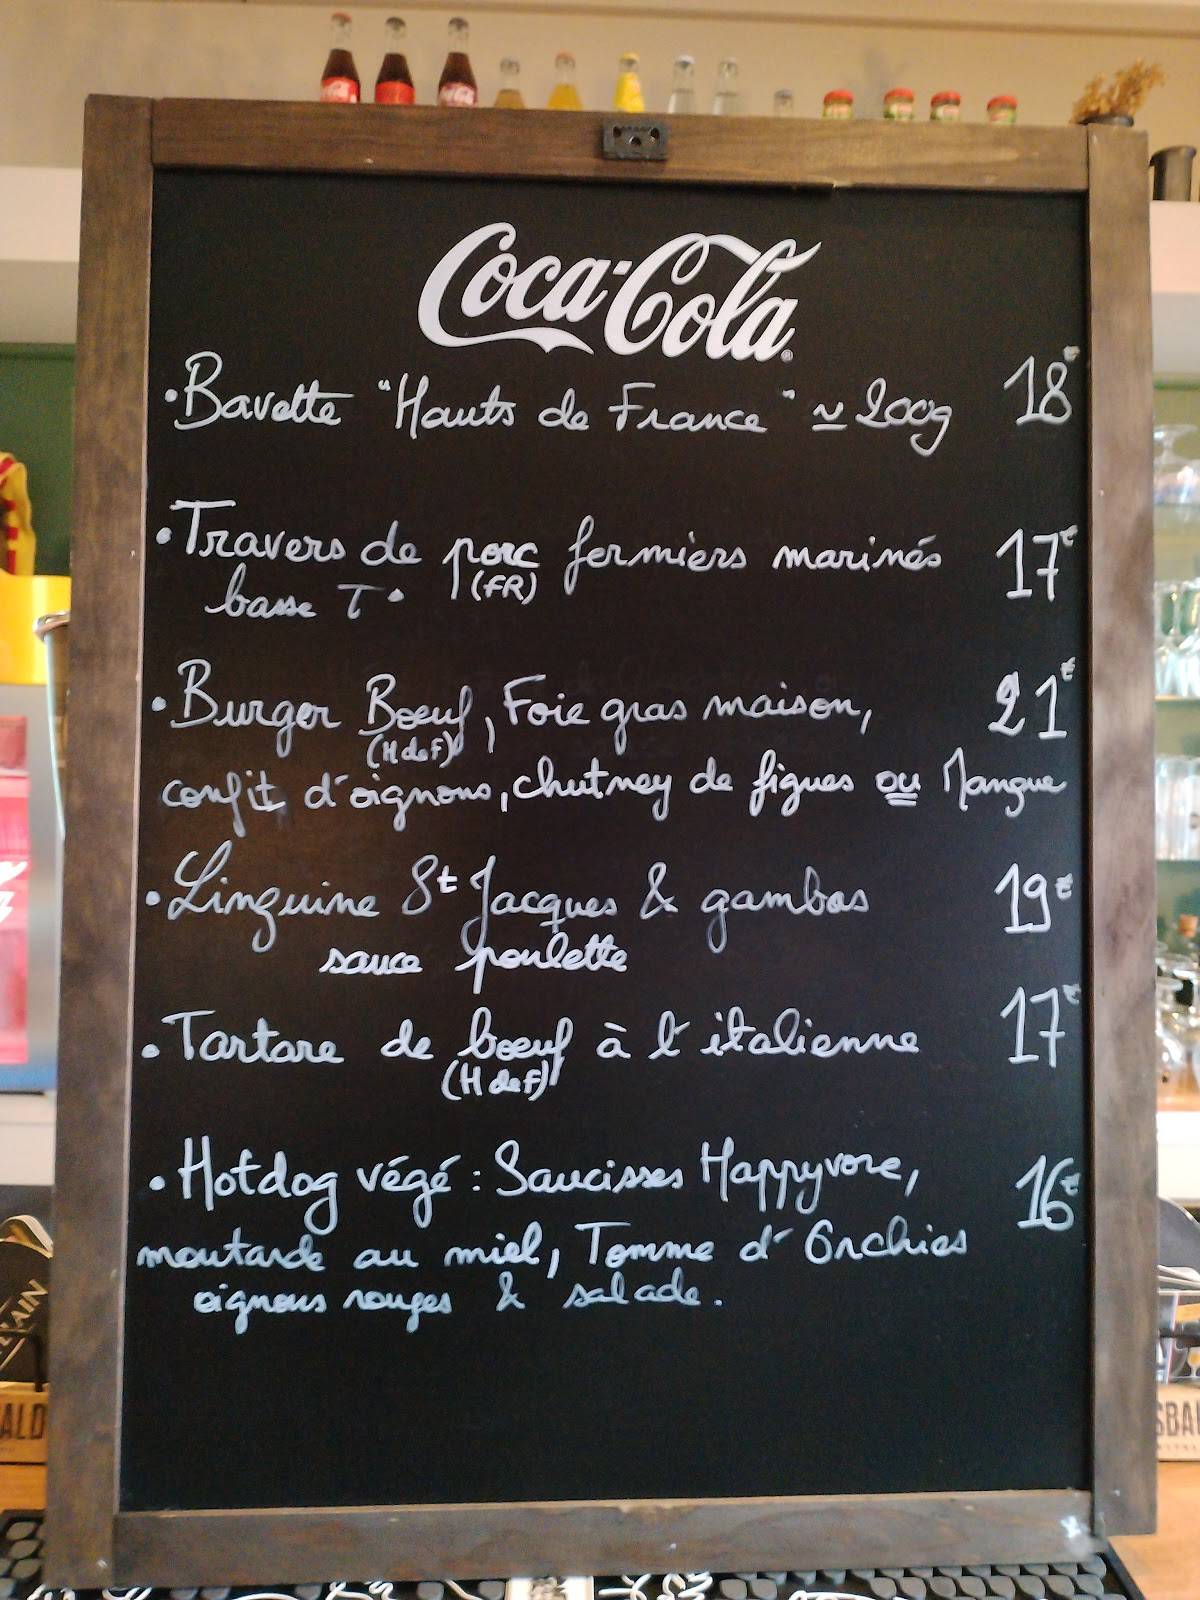 Coca-Cola
•Bavette "Hauts de France" ≃ 200g 18€
•Travers de porc fermiers marinés 17€
(FR)
basse T°
•Burger Bœuf, Foie gras maison, 21€
(H de F)
confit d'oignons, chutney de figues ou Mangue
•Linguine St Jacques & gambas 19€
sauce poulette
•Tartare de bœuf à l'italienne 17€
(H de F)
•Hotdog végé : Saucisses Happyvore, 16€
moutarde au miel, Tomme d'Orchies
oignons rouges & salade.